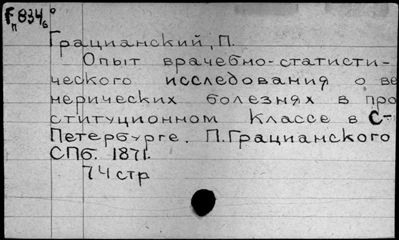 F 834/6°
п
Грацианский, П.
Опыт врачебно-статисти-
ческого исследования о ве
нерических болезнях в про
ституционном классе в С-
Петербурге. П. Грацианского
СПб. 1871.
74 стр